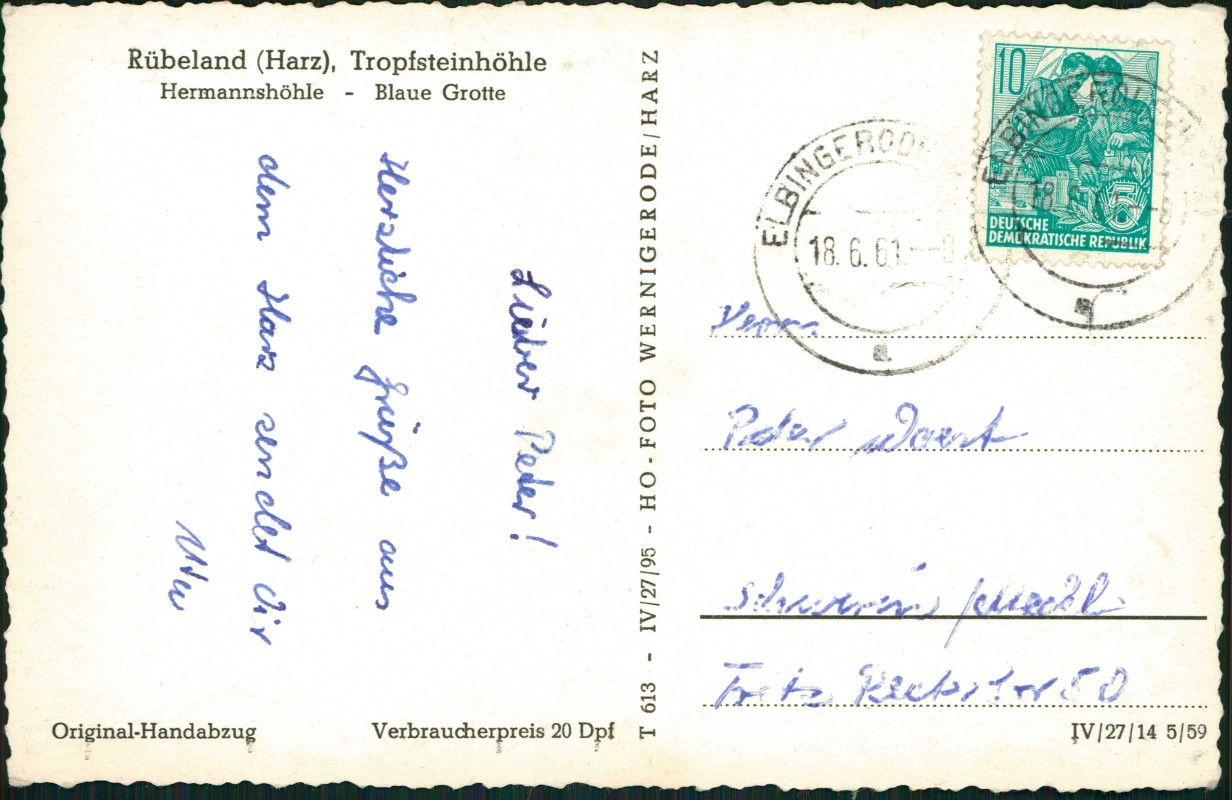 Rübeland (Harz), Tropfsteinhöhle
Hermannshöhle - Blaue Grotte
Lieber Peter!
Herzliche Grüße aus
dem Harz sendet Dir
Original-Handabzug
Verbraucherpreis 20 Dpf
T 613 - IV/27/95 - HO-FOTO WERNIGERODE/HARZ
10
DEUTSCHE
DEMOKRATISCHE REPUBLIK
5
ELBINGEROD
18.6.61.--8
a
ELBINGEROD
18.6.61
a
Herrn
Peter
Schwerin / Meckl
Fritz Reuterstr 50
IV/27/14 5/59